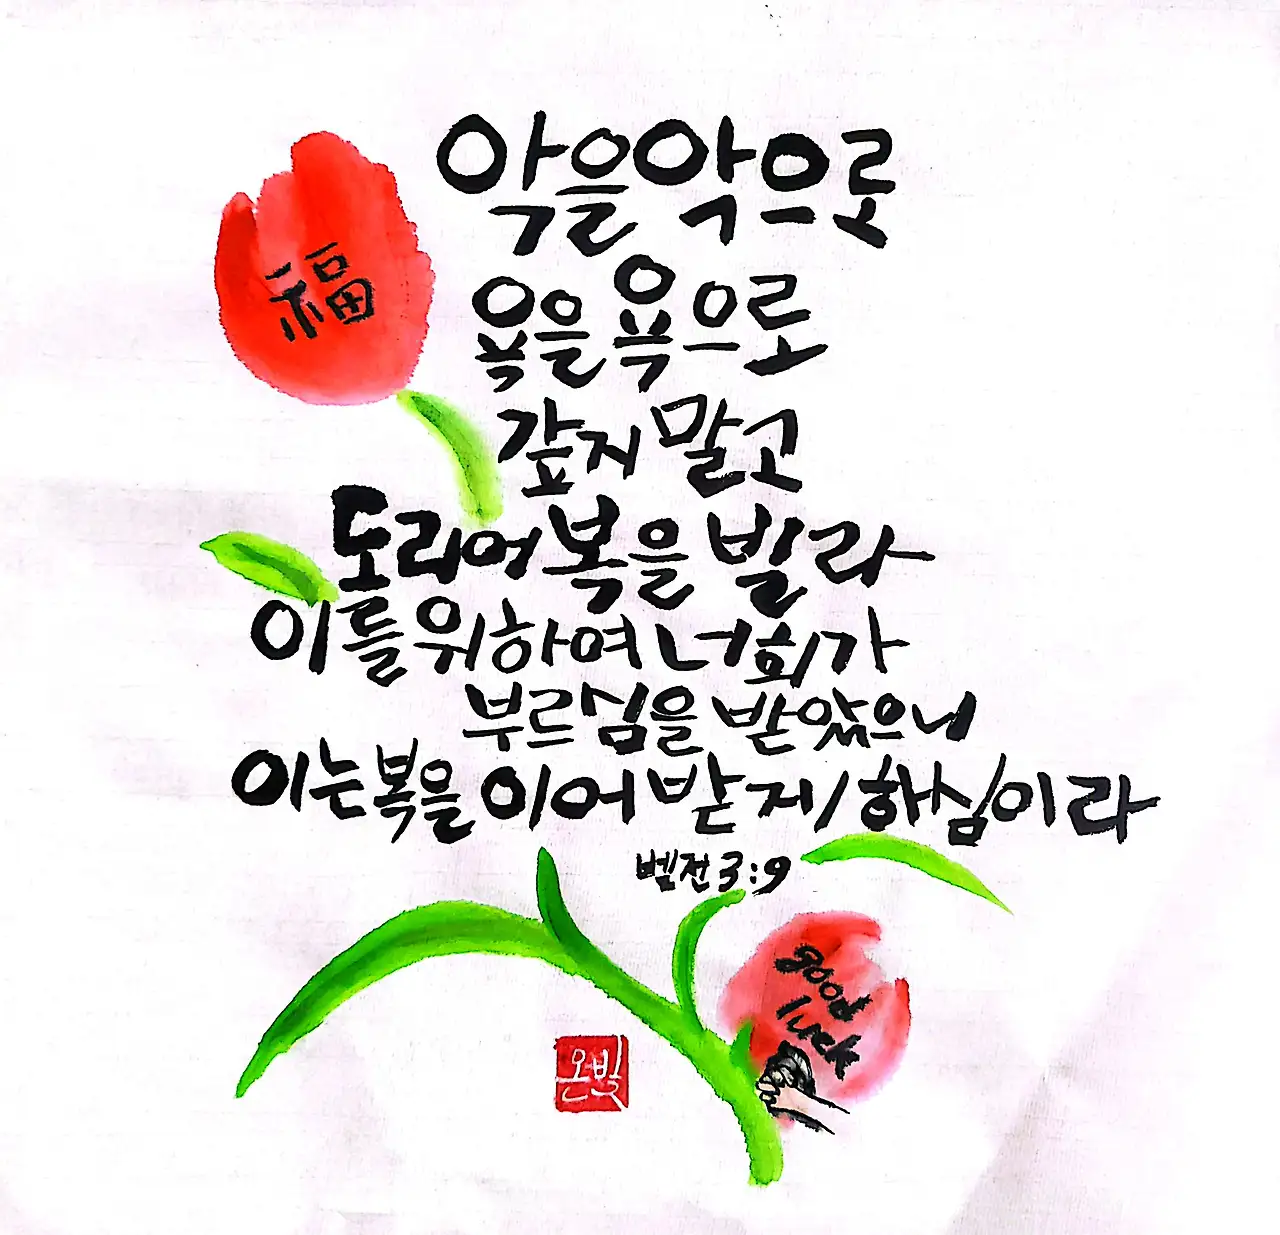 福
악을 악으로
욕을 욕으로
갚지 말고
도리어 복을 빌라
이를 위하여 너희가
부르심을 받았으니
이는 복을 이어 받게 하심이라
벧전 3:9
good
luck
온빛